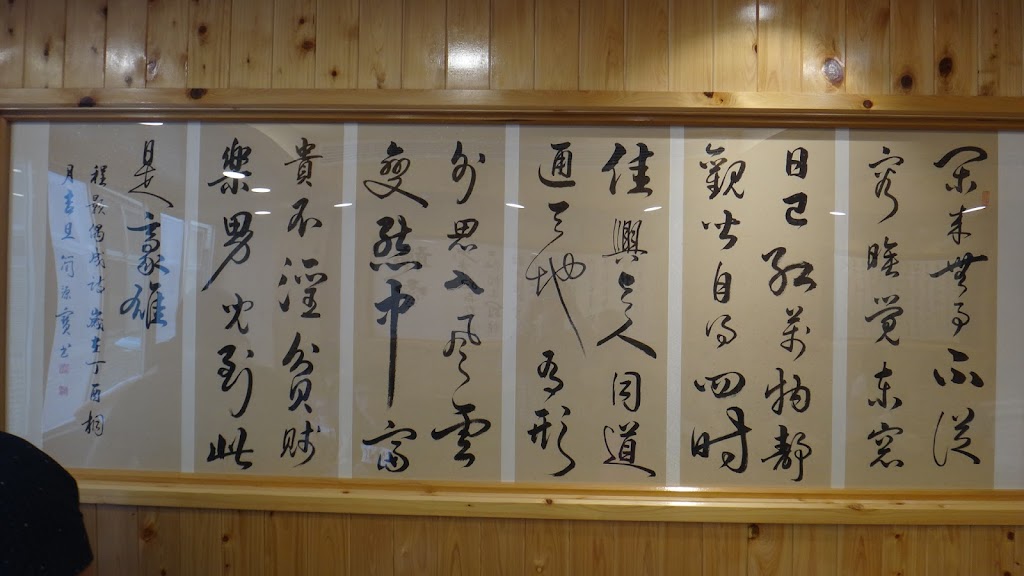 閑来無事不從
容睡覺东窓
日已紅萬物静
觀皆自得四时
佳興与人同道
通天地有形
外思入風雲
變態中富
貴不淫貧賤
樂男兒到此
是豪雄
程颢偶成詩 歲在丁酉桐
月吉旦 簡源寶书